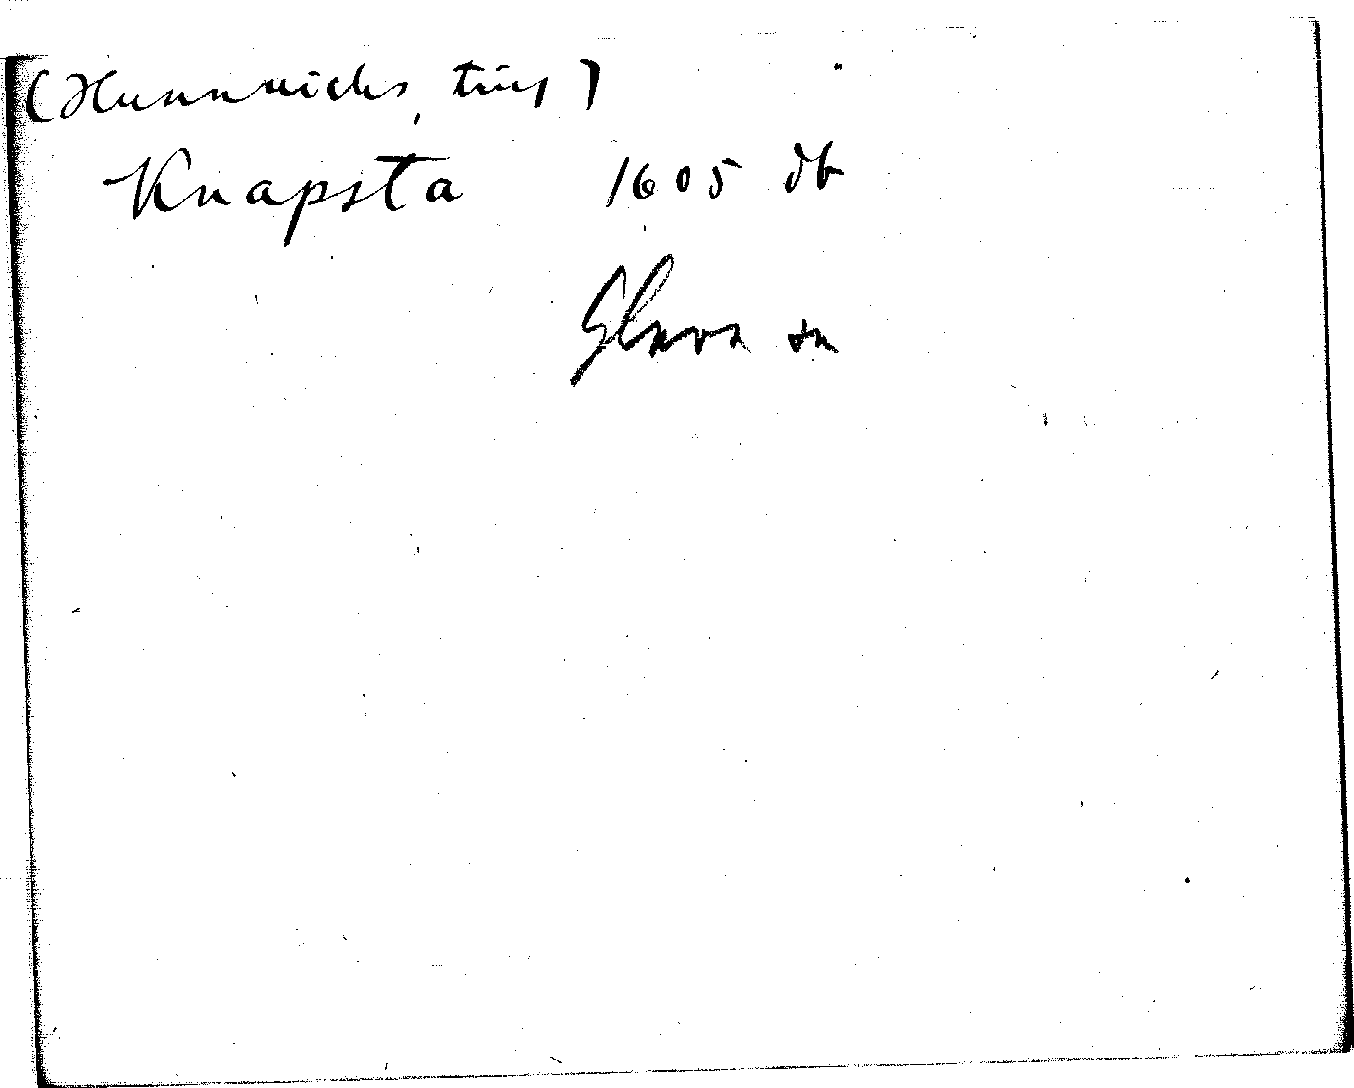 (Hunnvids, ting)
Knapsta 1605 db
Glava sn